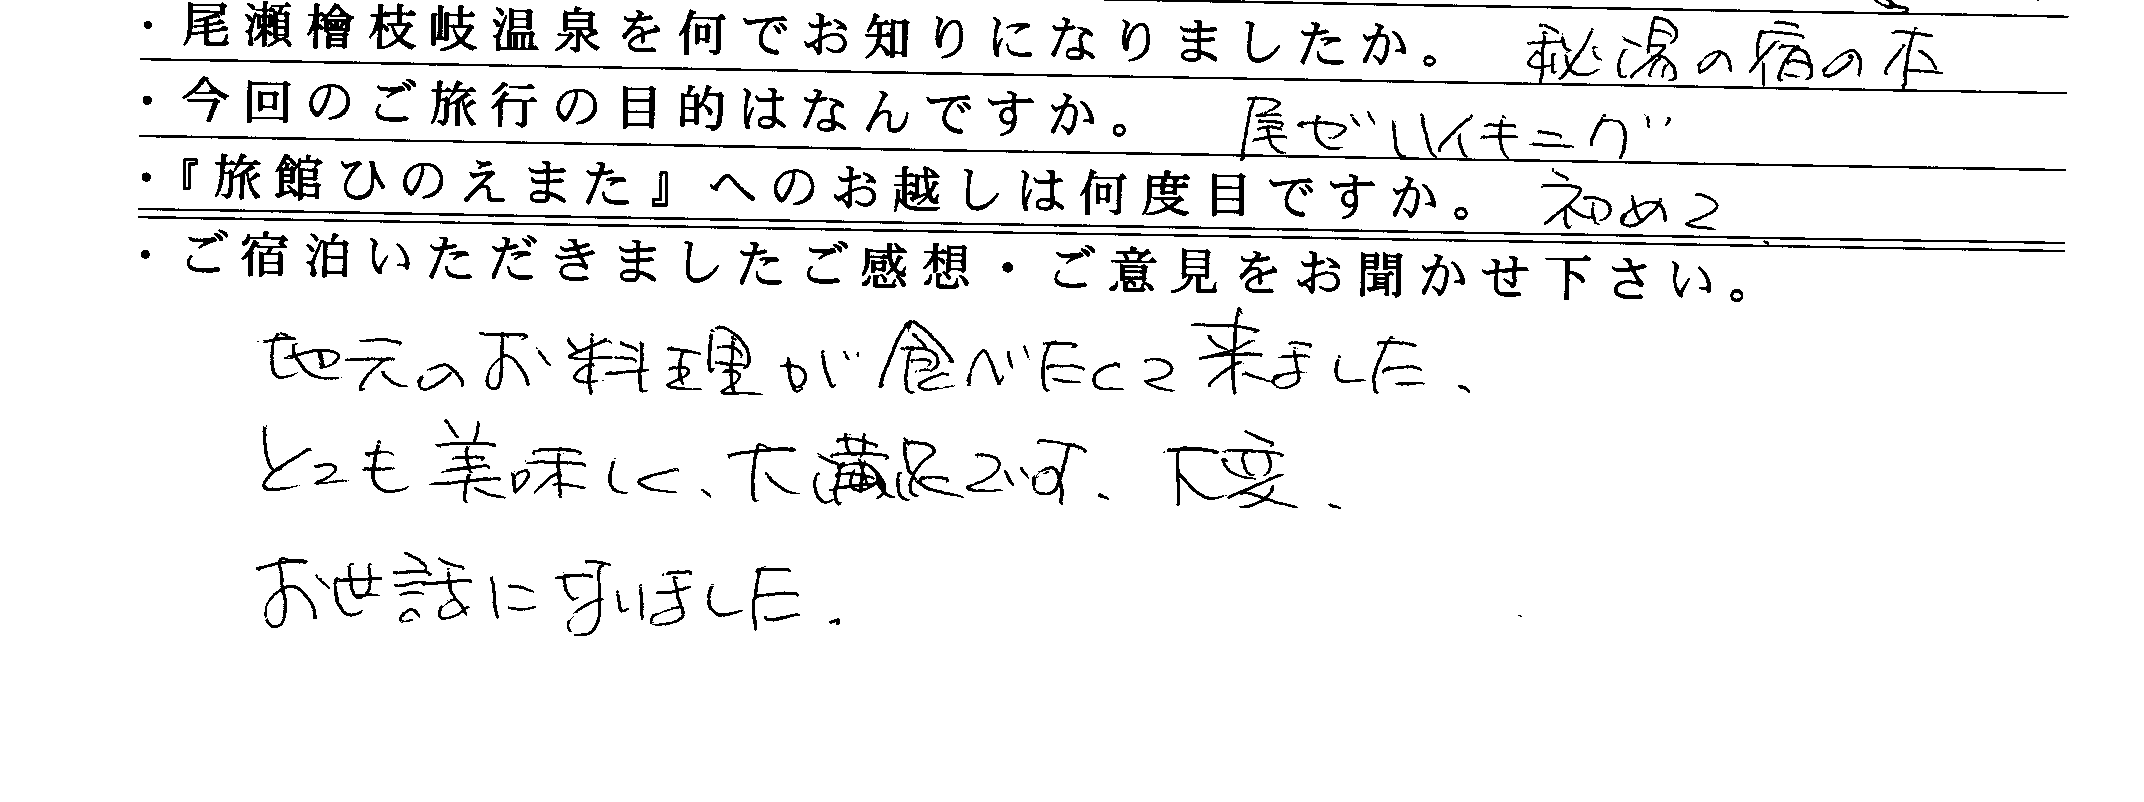 ・尾瀬檜枝岐温泉を何でお知りになりましたか。 秘湯の宿の本
・今回のご旅行の目的はなんですか。 尾ぜハイキング
・『旅館ひのえまた』へのお越しは何度目ですか。 初めて
・ご宿泊いただきましたご感想・ご意見をお聞かせ下さい。
地元のお料理が食べたくて来ました、
とても美味しく、大満足です、大変、
お世話になりました.